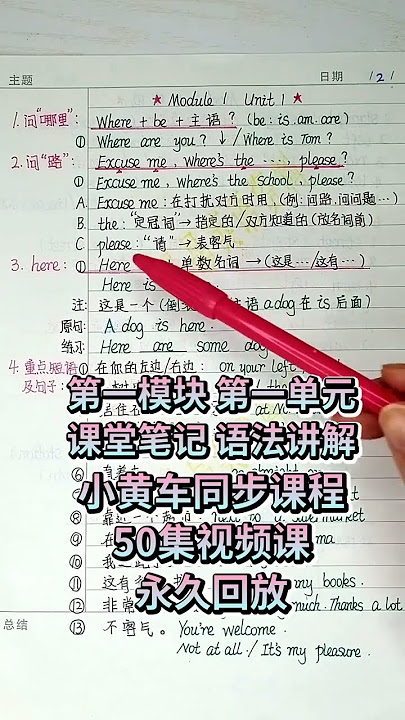 主题 日期 12
★ Module 1 Unit 1 ★
1. 问“哪里”: Where + be + 主语? (be: is.am.are)
① Where are you? ↓ / Where is Tom?
2. 问“路”: Excuse me, where's the …… please?
① Excuse me, where's the school, please?
A. Excuse me: 在打扰对方时用 (例:问路.问问题…)
B. the: “定冠词”→指定的/双方知道的 (放名词前)
C. please: “请” → 表客气
3. here: ① Here 单数名词 → (这是…/这有…)
Here is
注: 这是一个(倒装 主语 a dog 在 is 后面)
原句: A dog is here.
练习: Here are some dog
4. 重点短语及句子: ① 在你的左边/右边: on your left /
第一模块 第一单元
课堂笔记 语法讲解
小黄车同步课程
50集视频课
永久回放
at No
⑥
⑧ next to a supermarket
⑨ 在
⑩ 我
⑪ 这有 my books.
⑫ 非常 much. Thanks a lot.
总结 ⑬ 不客气。 You're welcome.
Not at all. / It's my pleasure.